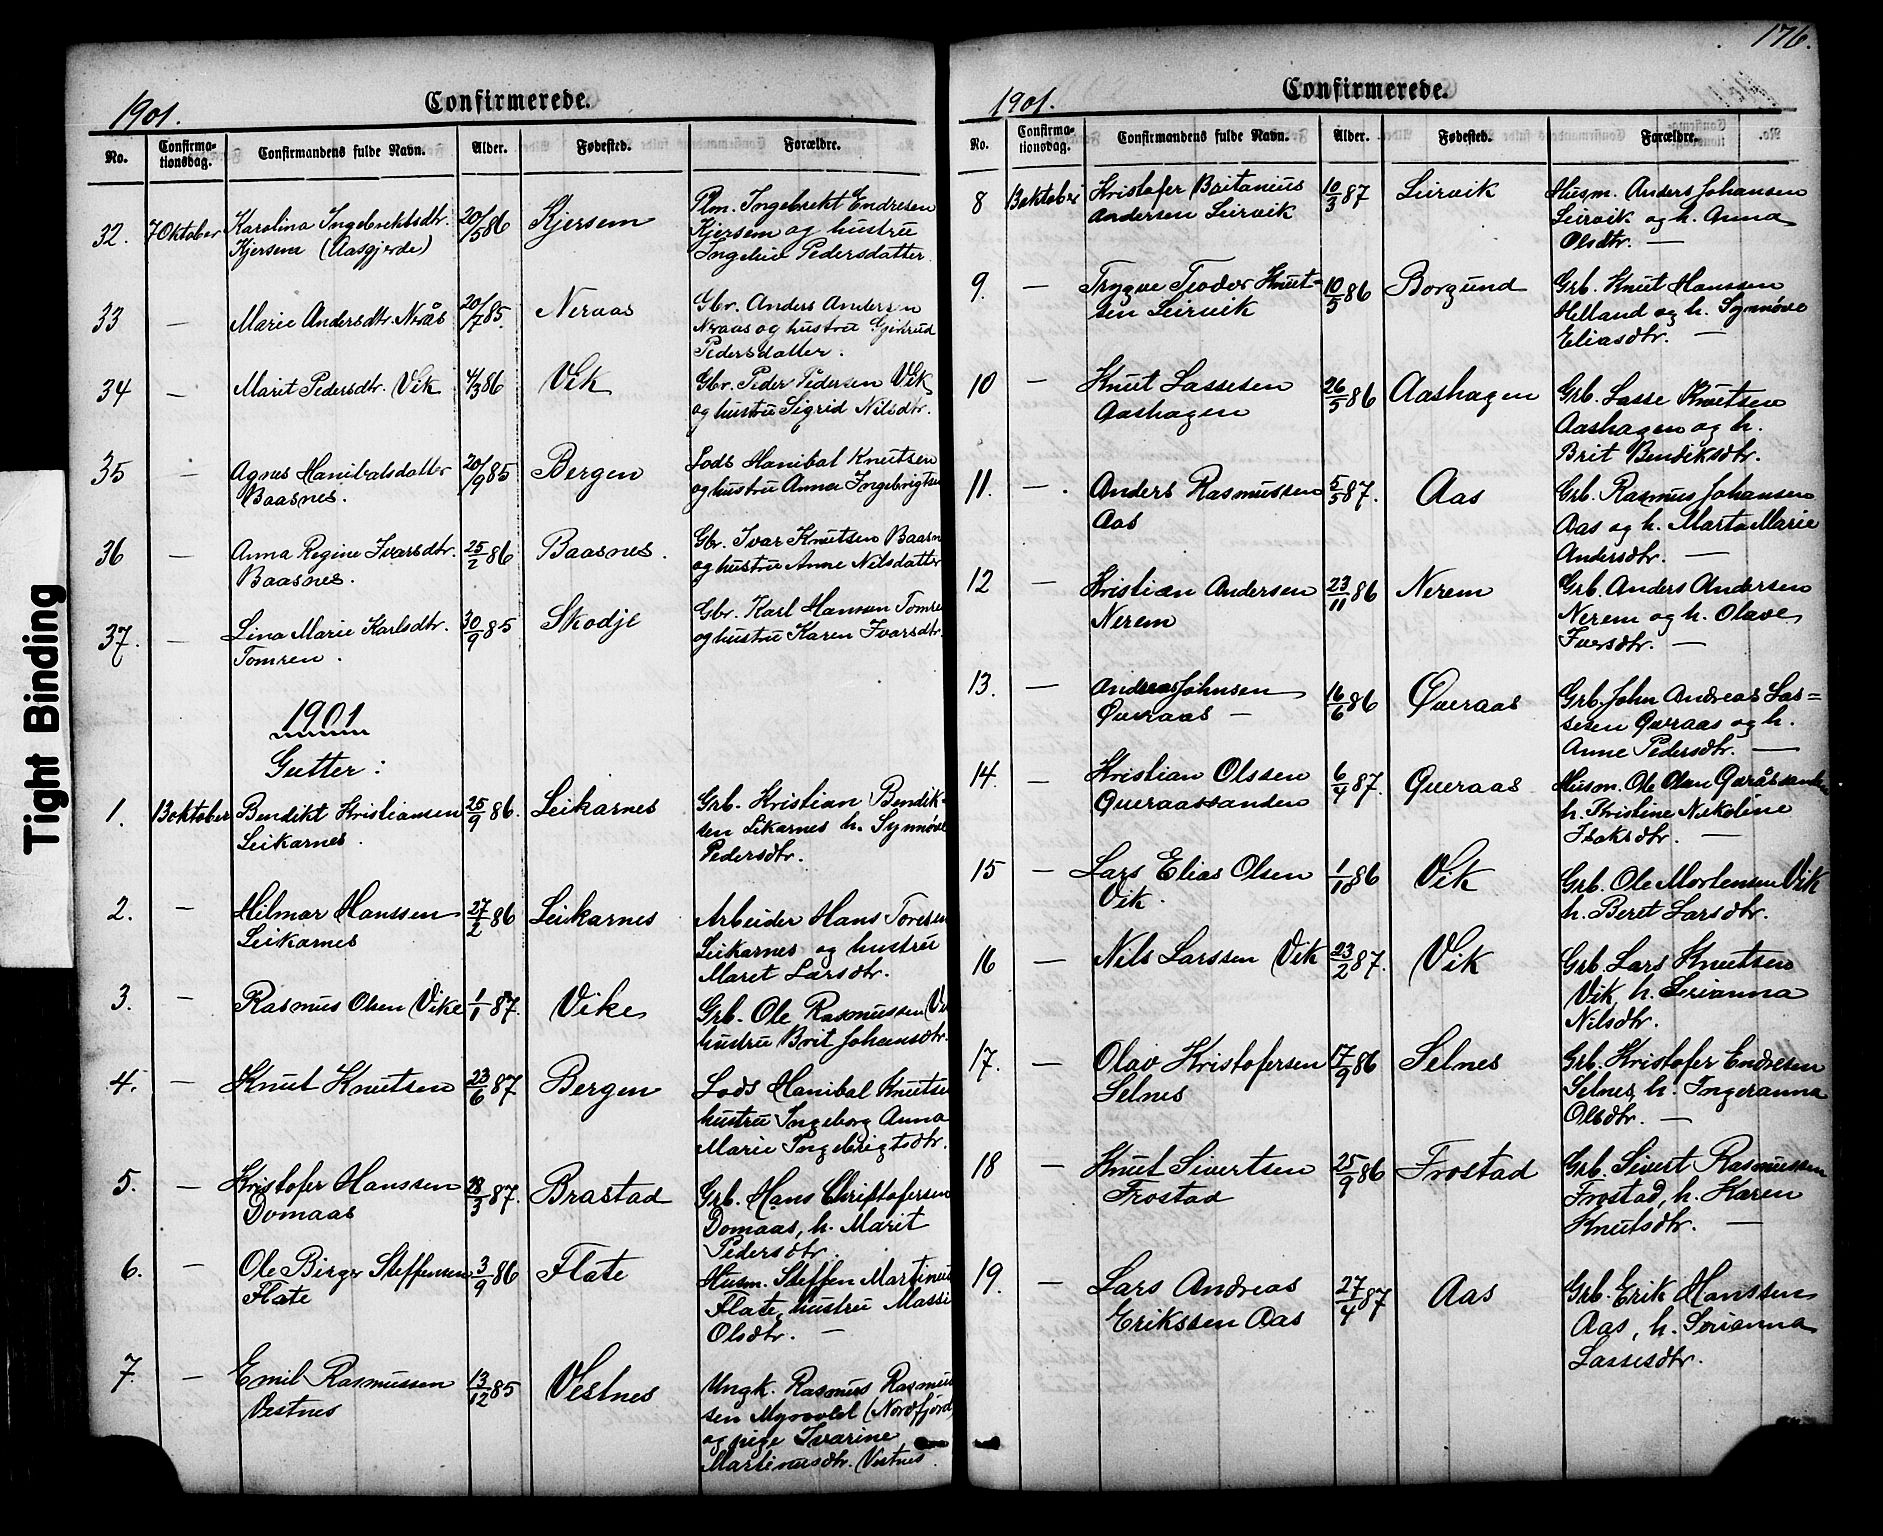 1901.
Confirmerede.
No. Confirmationsdag. Confirmandens fulde Navn. Alder. Fødested. Forældre.
32. 7 Oktober Karolina Ingebrektsdtr. Kjersem (Aasgjerde) 20/5 86 Kjersem Plm. Ingebrekt Endresen Kjersem og hustru Pedersdatter.
33 — Marie Andersdtr. Nerås 20/7 85. Neraas Gbr. Anders Andersen Neraas og hustru Pedersdatter.
34 — Marit Pedersdtr. Vik 4/3 86 Vik Gbr. Peder Pedersen Vik og hustru Sigrid Nilsdtr.
35 — Agnes Hanibalsdatter Baasnes. 20/9 85 Bergen Lods Hanibal Knutsen og hustru Anna
36 — Anna Regine Ivarsdtr. Baasnes. 25/2 86 Baasnes. Gbr. Ivar Knutsen Baasn og hustru Anne Nilsdatter
37. — Lina Marie Karlsdtr. Tomren. 30/9 85 Skodje Gbr. Karl Hansen Tomre og hustru Karen Ivarsdtr.
1901
Gutter:
1. 13 oktober Bendikt Kristiansen Leikarnes. 25/9 86. Leikarnes Grb. Kristian Bendiksen Leikarnes h. Synnøve Pedersdtr.
2. — Hilmar Hanssen Leikarnes 27/2 86 Leikarnes Arbeider Hans Toresen Leikarnes og hustru Maret Larsdtr.
3. — Rasmus Olsen Vike 1/1 87. Vike Grb. Ole Rasmussen Vi hustru Brit Johansdtr.
4. — Knut Knutsen 23/6 87 Bergen Lods Hanibal Knutse hustru Ingeborg Anna Marie Ingebrigtsdtr.
5. — Kristofer Hanssen Domaas 28/3 87. Brastad Grb. Hans Christofersen Domaas, h. Marit Pedersdtr.
6. — Ole Birger Steffensen Flate 3/9 86 Flate Husm. Steffen Martinus Flate, hustru Massi Olsdtr. —
7. — Emil Rasmussen Vestnes 13/12 85 Vestnes Ungk. Rasmus Rasmussen Myrvold (Nordfjord) og pige Ivarine Martinusdtr. Vestnes.
176.
1901.
Confirmerede.
No. Confirmationsdag. Confirmandens fulde Navn. Alder. Fødested. Forældre.
8 13 oktober Kristofer Britanius Andersen Leirvik 10/3 87 Leirvik Husm. Anders Johansen Leirvik og h. Anna Olsdtr. —
9. — Trygve Teodor Knutsen Leirvik 10/5 86 Borgund Grb. Knut Hanssen Helland og h. Synnøve Eliasdtr. —
10 — Knut Lassesen Aashagen 26/5 86 Aashagen Grb. Lasse Knutsen Aashagen og h. Brit Bendiksdtr.
11. — Anders Rasmussen Aas 5/5 87. Aas Grb. Rasmus Johansen Aas og h. Marta Marie Andersdtr. —
12 — Kristian Andersen Nerem 23/11 86 Nerem Grb. Anders Andersen Nerem og h. Olave Iversdtr. —
13. — Andreas Johnsen Øveraas — 16/6 86 Øveraas Grb. John Andreas Lassesen Øveraas og h. Anne Pedersdtr. —
14. — Kristian Olssen Øveraassanden 6/4 87. Øveraas Husm. Ole Olsen Øveråssanden h. Kristine Nikoline Isaksdtr. —
15 — Lars Elias Olsen Vik. 1/10 86 Vik Grb. Ole Mortensen Vik h. Beret Larsdtr.
16 — Nils Larssen Vik 23/2 87. Vik Grb. Lars Knutsen Vik, h. Serianna Nilsdtr.
17. — Olav Kristofersen Selnes 17/9 86 Selnes Grb. Kristofer Endresen Selnes, h. Ingeranna Olsdtr. —
18 — Knut Sivertsen Frostad 25/9 86 Frostad Grb. Sivert Rasmussen Frostad, h. Karen Knutsdtr. —
19. — Lars Andreas Erikssen Aas 27/4 87 Aas Grb. Erik Hanssen Aas, h. Serianna Lassesdtr.
Tight Binding